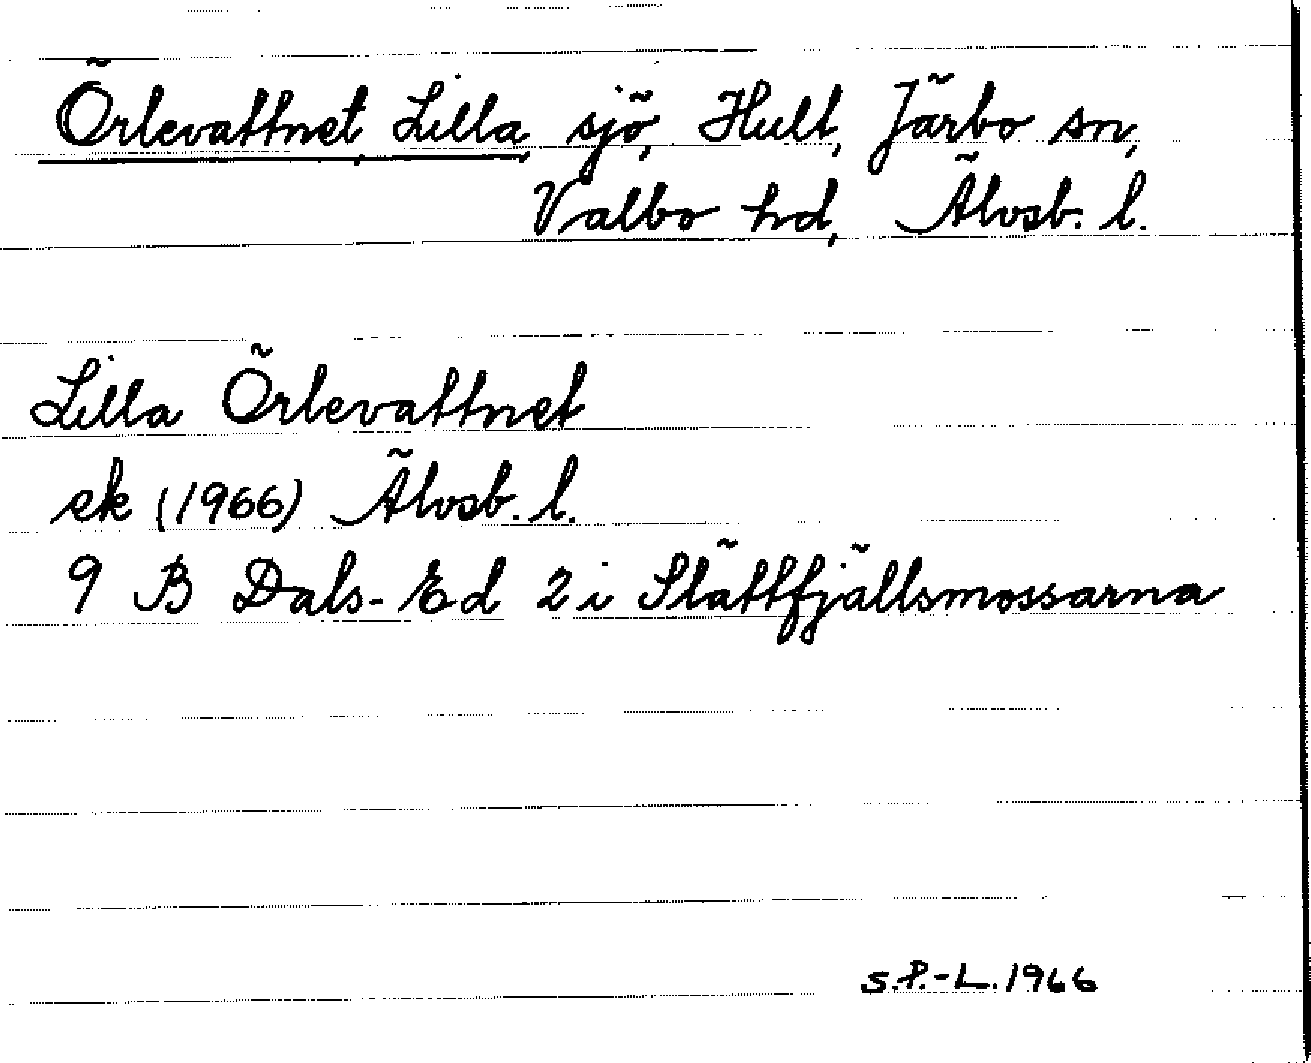 Örlevattnet, Lilla, sjö, Hult, Järbo sn,
Valbo hd, Älvsb. l.
Lilla Örlevattnet
ek (1966) Älvsb. l.
9 B Dals-Ed 2 i Slättfjällsmossarna
S.P.-L. 1966